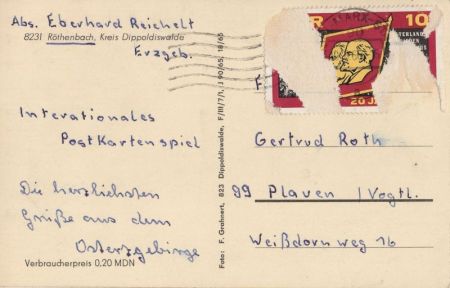 Abs. Eberhard Reichelt
8231 Röthenbach, Kreis Dippoldiswalde
Erzgeb.
Internationales
Postkartenspiel
Die herzlichsten
Grüße aus dem
Osterzgebirge
Verbraucherpreis 0,20 MDN
Foto: F. Grahnert, 823 Dippoldiswalde, F/III/7/1, J 90/65, 18/65
MARX-
R 10
20 JA
Gertrud Roth
99 Plauen / Vogtl.
Weißdornweg 16